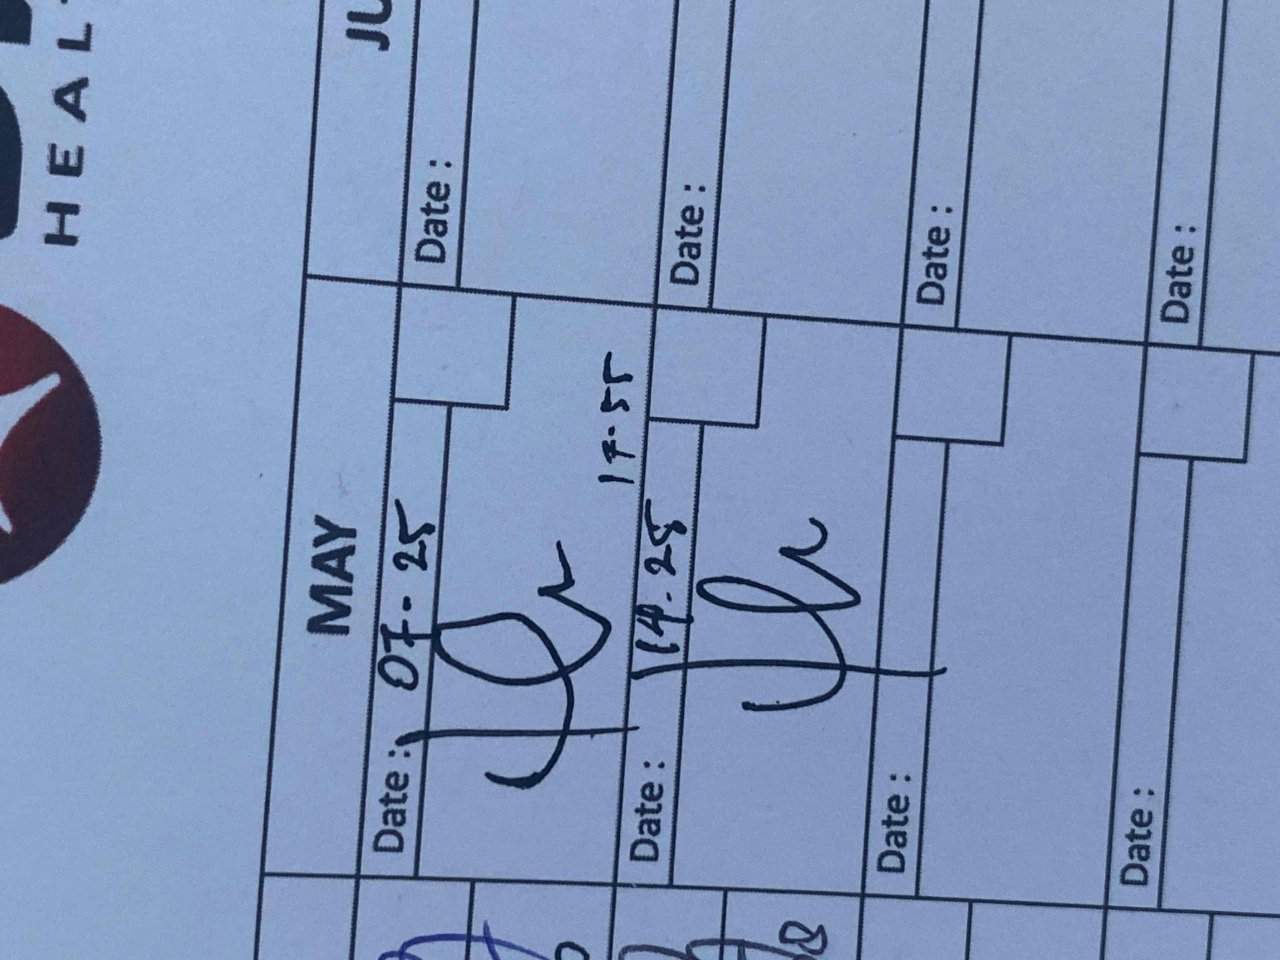 HEAL
MAY
JU
Date : 07-25
Date :
17-55
Date : 14-25
Date :
Date :
Date :
Date :
Date :